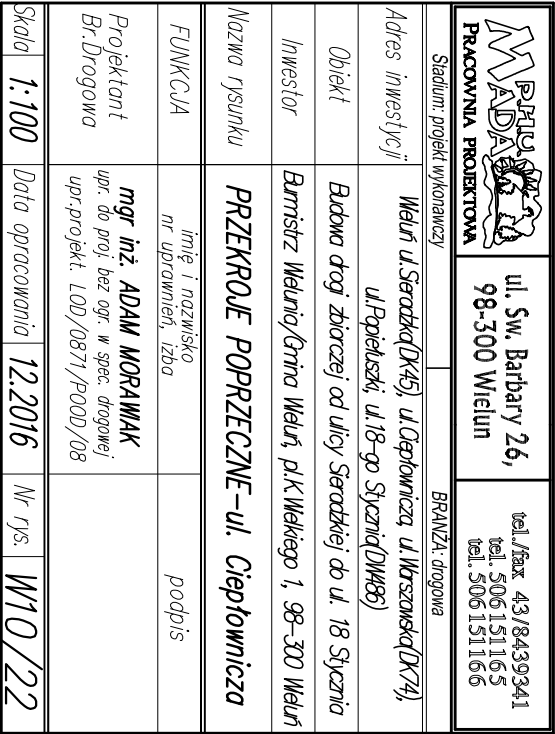 P.H.U.
MADA
PRACOWNIA PROJEKTOWA
ul. Sw. Barbary 26,
98-300 Wielun
tel./fax 43/8439341
tel. 506151165
tel. 506151166
Stadium: projekt wykonawczy
BRANŻA: drogowa
Adres inwestycji
Wieluń ul.Sieradzka(DK45), ul.Ciepłownicza, ul.Warszawska(DK74),
ul.Popiełuszki, ul.18-go Stycznia(DW486)
Obiekt
Budowa drogi zbiorczej od ulicy Sieradzkiej do ul. 18 Stycznia
Inwestor
Burmistrz Wielunia/Gmina Wieluń, pl.K.Wielkiego 1, 98-300 Wieluń
Nazwa rysunku
PRZEKROJE POPRZECZNE-ul. Ciepłownicza
FUNKCJA
imię i nazwisko
nr uprawnień, izba
podpis
Projektant
Br.Drogowa
mgr inż ADAM MORAWIAK
upr. do proj. bez ogr. w spec. drogowej
upr.projekt. LOD/0871/POOD/08
Skala 1:100 Data opracowania 12.2016 Nr rys. W10/22